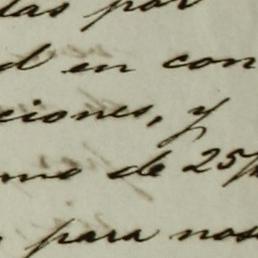 das por
d en con
ciones, y
mo de 25
para nos